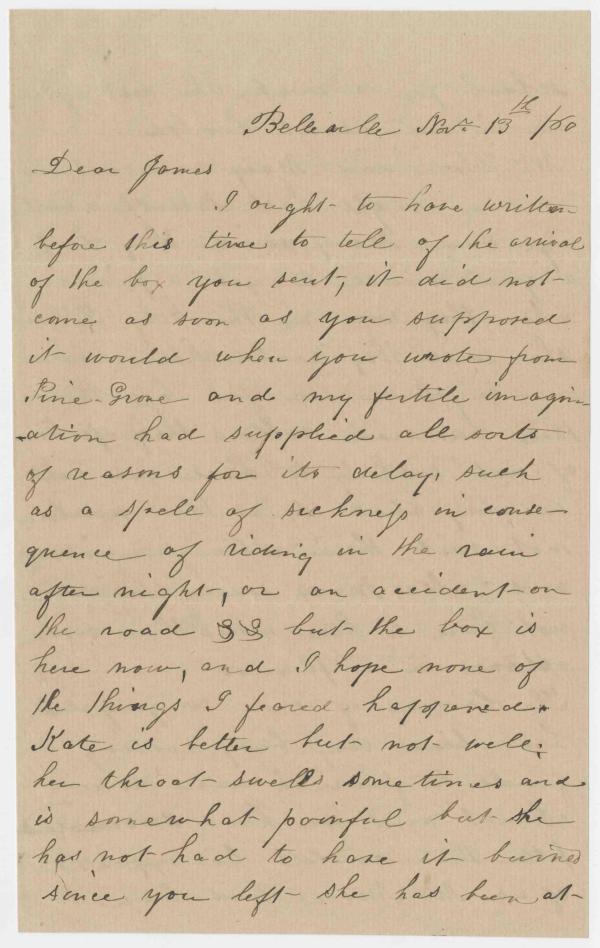 Belleville Nov. 13th /60
Dear James
I ought to have written
before this time to tell of the arrival
of the box you sent, it did not
come as soon as you supposed
it would when you wrote from
Pine-Grove and my fertile imagin-
-ation had supplied all sorts
of reasons for its delay, such
as a spell of sickness in conse-
quence of riding in the rain
after night, or an accident on
the road but the box is
here now, and I hope none of
the things I feared happened.
Kate is better but not well;
her throat swells sometimes and
is somewhat painful but she
has not had to have it burned
since you left she has been at-